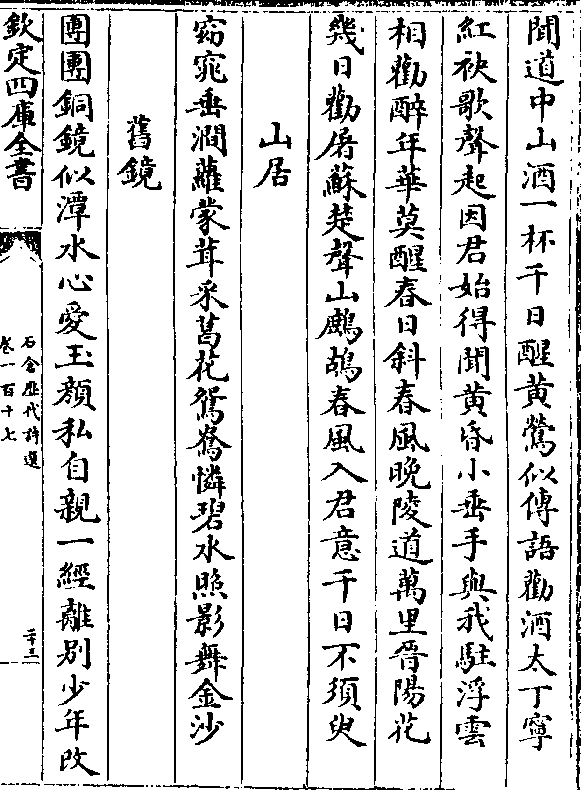 聞道中山酒一杯千日醒黄鶯似傳語勸酒太丁寧
紅袂歌聲起因君始得聞黄昏小垂手與我駐浮雲
相勸醉年華莫醒春日斜春風晚陵道萬里晉陽花
幾日勸屠蘇楚聲山鷓鴣春風入君意千日不須臾
山居
窈窕垂澗蘿蒙茸采葛花鴛鴦憐碧水照影舞金沙
舊鏡
團團銅鏡似潭水心愛玉顔私自親一經離别少年改
欽定四庫全書
石倉歷代詩選
卷一百十七
二十三